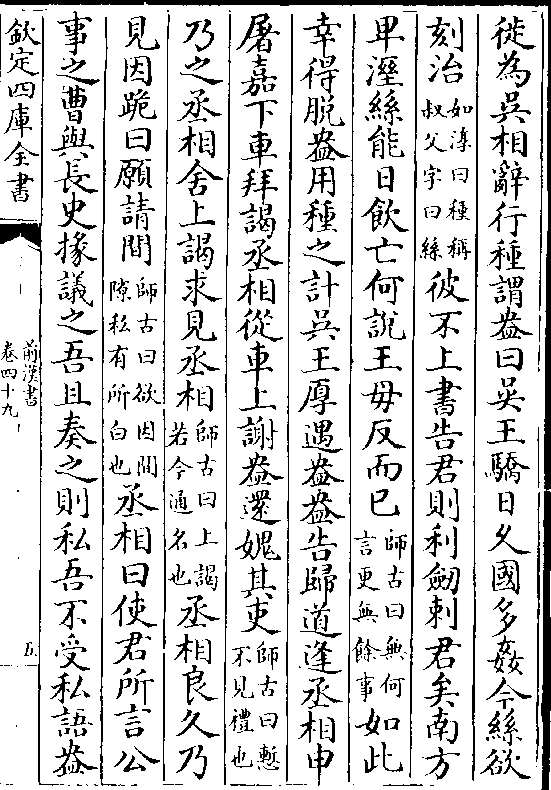 徙為吳相辭行種謂盎曰吳王驕日久國多姦今絲欲
刻治如淳曰種稱叔父字曰絲彼不上書告君則利劒刺君矣南方
卑溼絲能日飲亡何說王毋反而已師古曰無何言更無餘事如此
幸得脫盎用種之計吳王厚遇盎盎告歸道逢丞相申
屠嘉下車拜謁丞相從車上謝盎還媿其吏師古曰慙不見禮也
乃之丞相舍上謁求見丞相師古曰上謁若今通名也丞相良久乃
見因跪曰願請間師古曰欲因間隙私有所白也丞相曰使君所言公
事之曹與長史掾議之吾且奏之則私吾不受私語盎
欽定四庫全書
前漢書
卷四十九
五